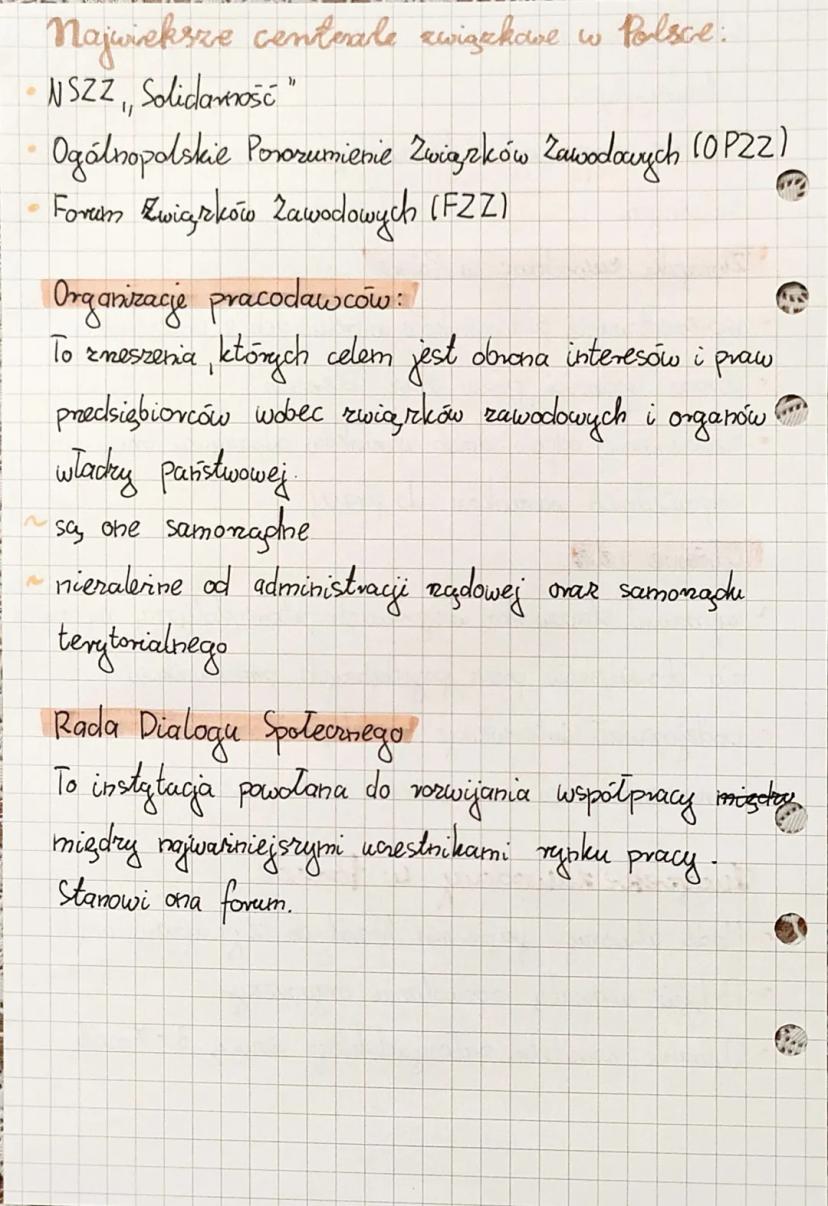 Największe centrale związkowe w Polsce:
• NSZZ „Solidarność"
• Ogólnopolskie Porozumienie Związków Zawodowych (OPZZ)
• Forum Związków Zawodowych (FZZ)
Organizacje pracodawców:
To zrzeszenia, których celem jest obrona interesów i praw
przedsiębiorców wobec związków zawodowych i organów
władzy państwowej.
~ są one samorządne
~ niezależne od administracji rządowej oraz samorządu
terytorialnego
Rada Dialogu Społecznego
To instytucja powołana do rozwijania współpracy między
między najważniejszymi uczestnikami rynku pracy.
Stanowi ona forum.